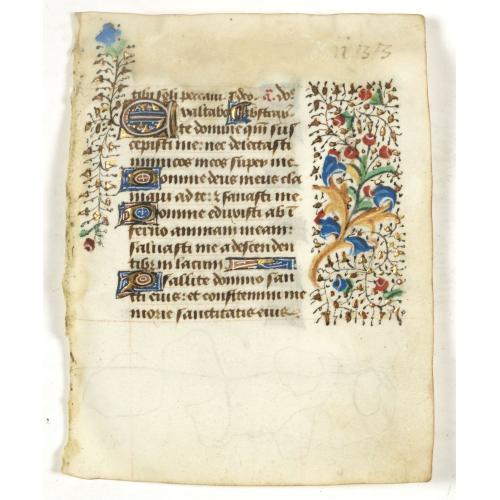 tibi soli peccavi. Deo. a. do.
Exaltabo te domine
te domine qm sus
cepisti me: nec delectasti
inimicos meos super me
Domine deus meus cla
mavi ad te: & sanasti me
Domine eduxisti ab i
ferno animam meam:
salvasti me a descenden
tibz in lacum
Psallite domino san
cti eius: et confitemini me
morie sanctitatis eius